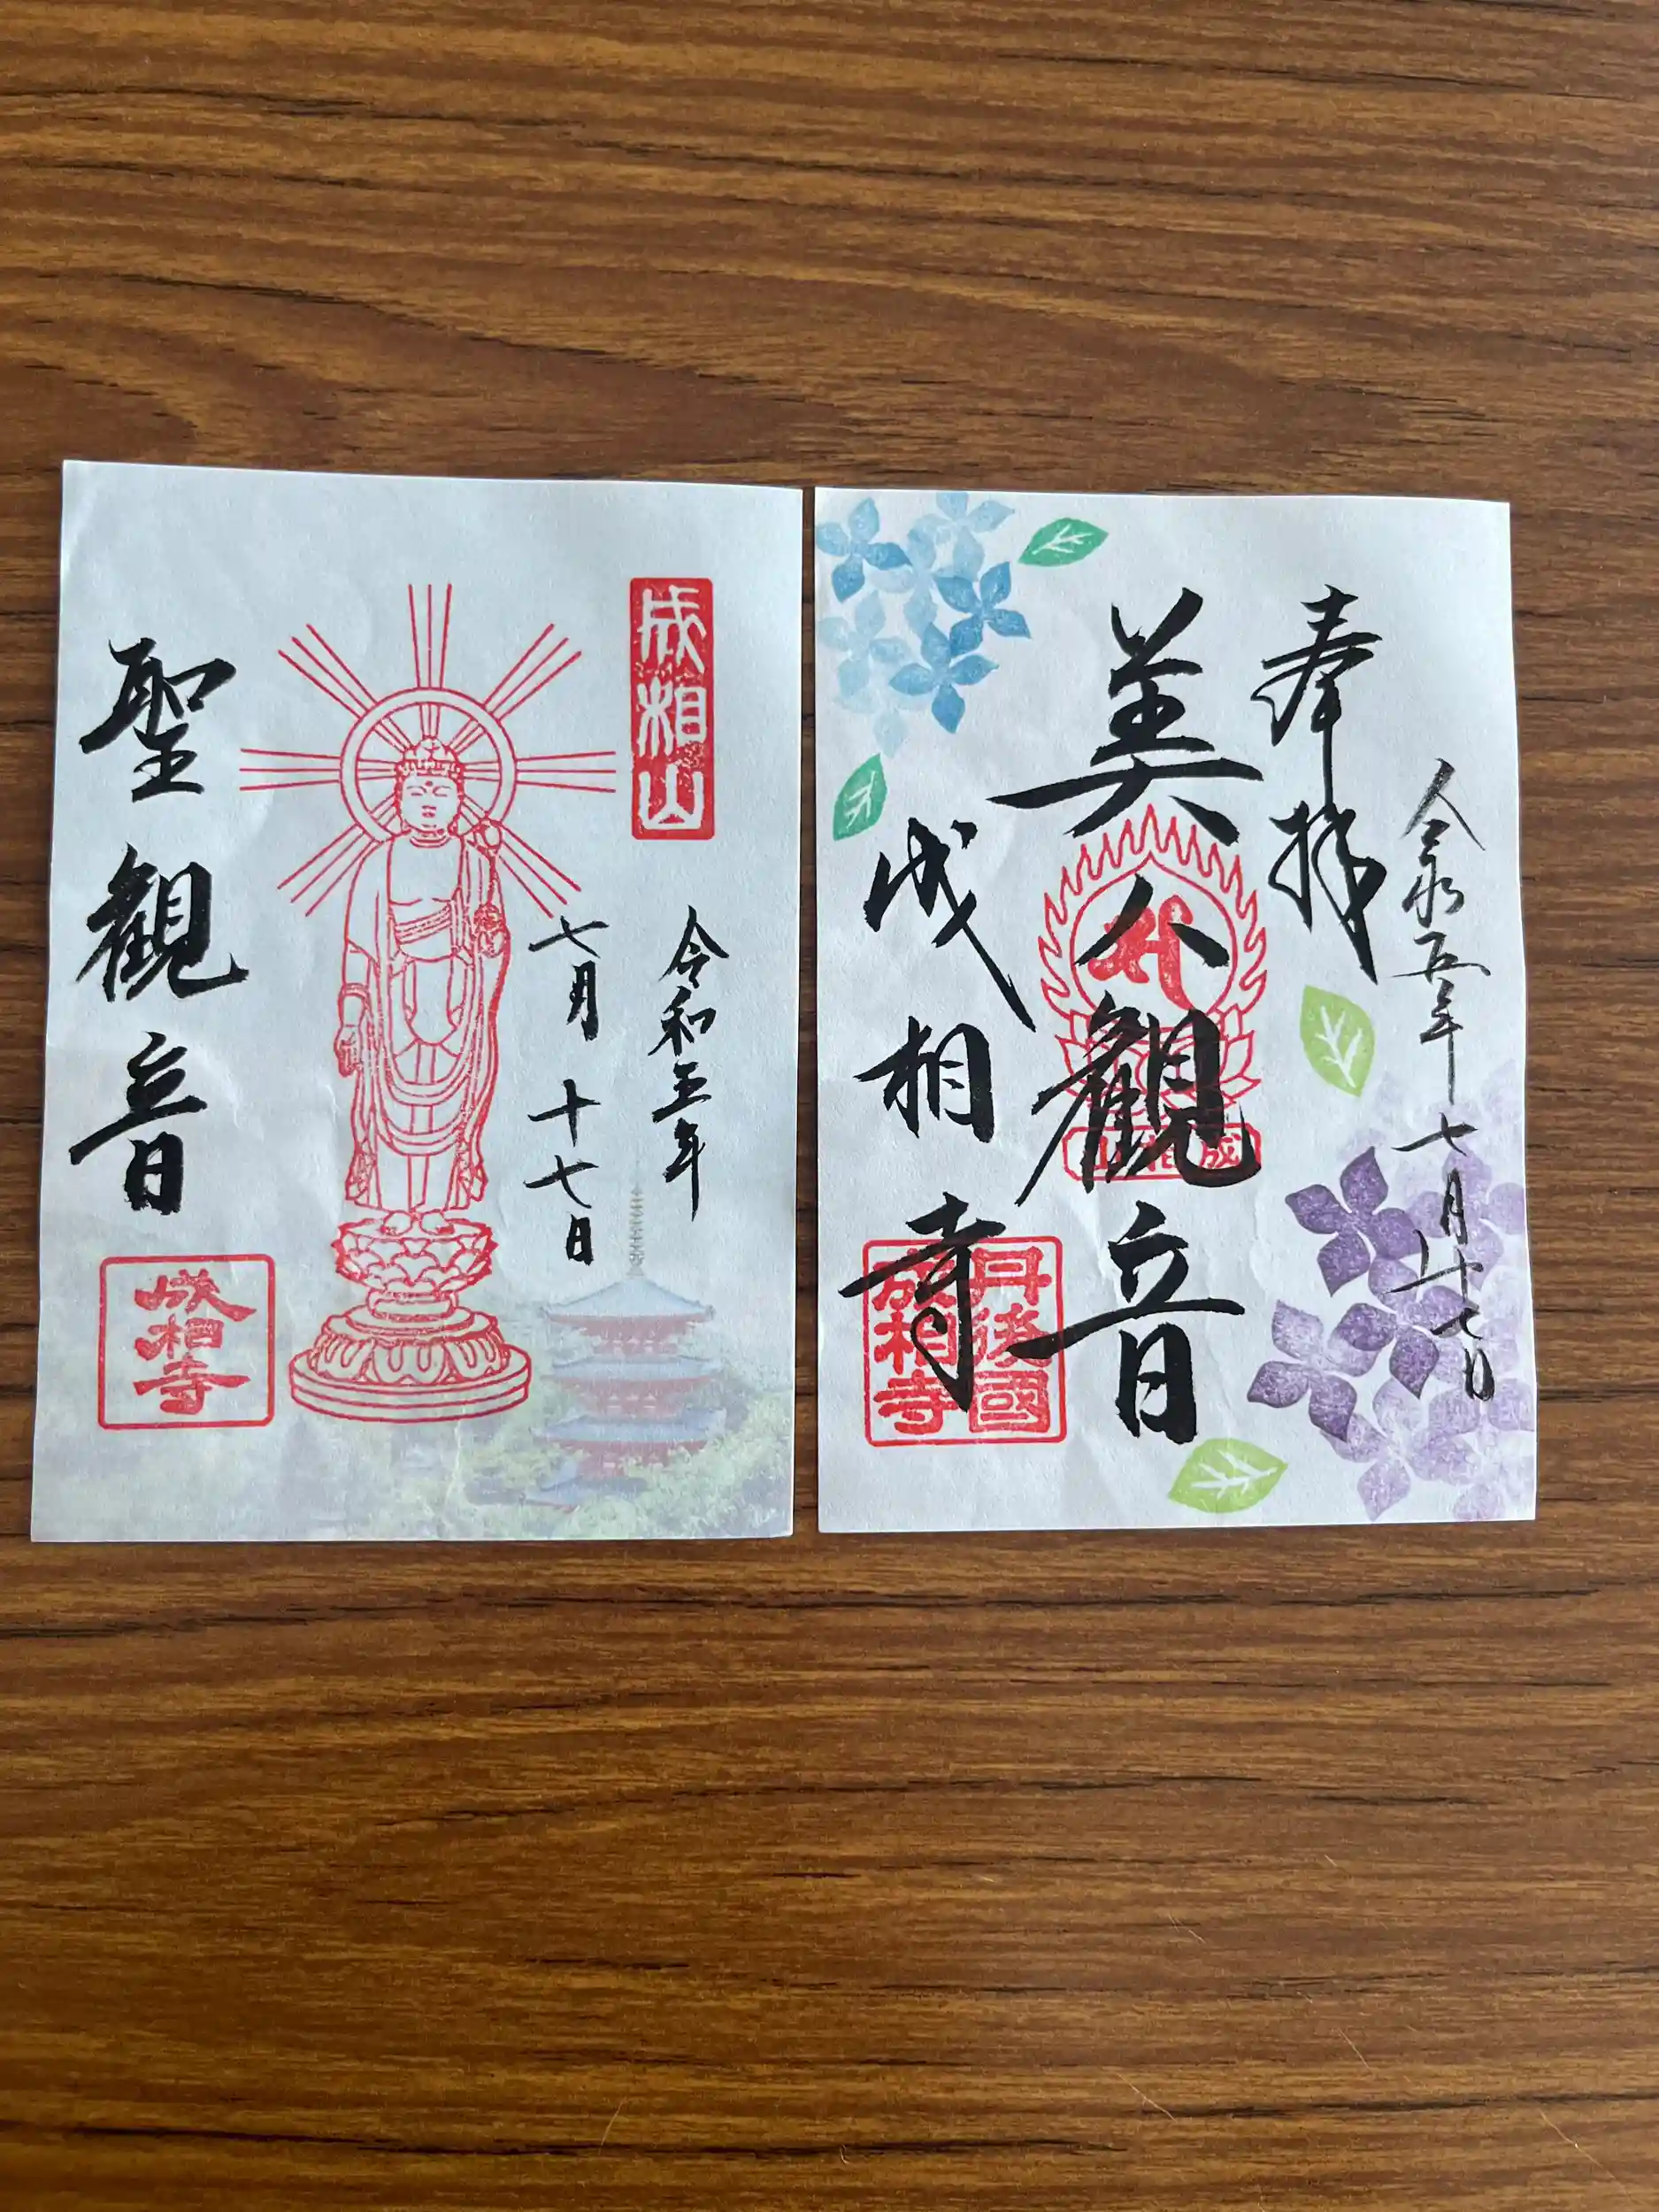 成相山
令和五年
七月十七日
聖観音
成相寺
令和五年七月十七日
奉拝
美人観音
成相山
成相寺
丹後國
成相寺